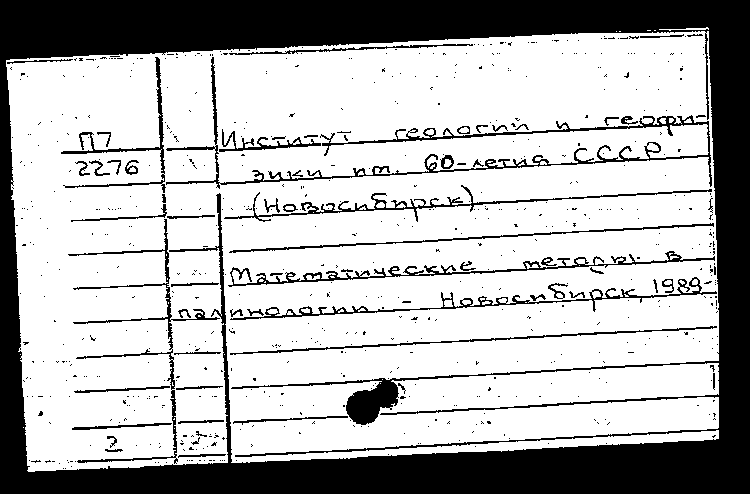 П7
2276
Институт геологии и геофи-
зики им. 60-летия СССР.
(Новосибирск)
Математические методы в
палинологии. - Новосибирск, 1989-
2